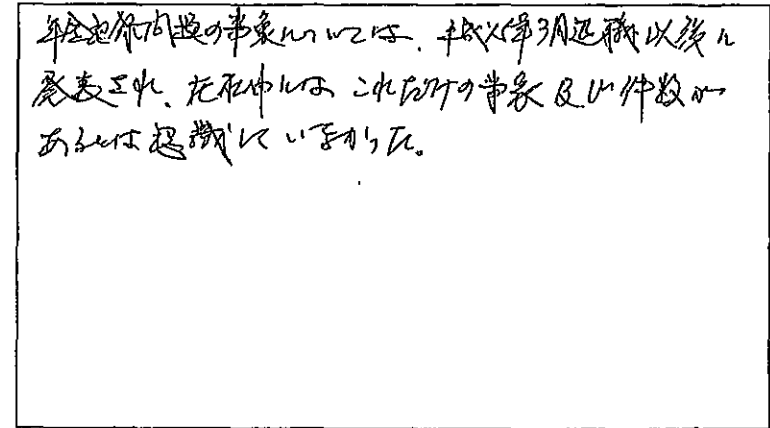 年金記録問題の事象については、平成 年3月退職以後に
発表され、在職中には これだけの事象及び件数が
あるとは認識していなかった。